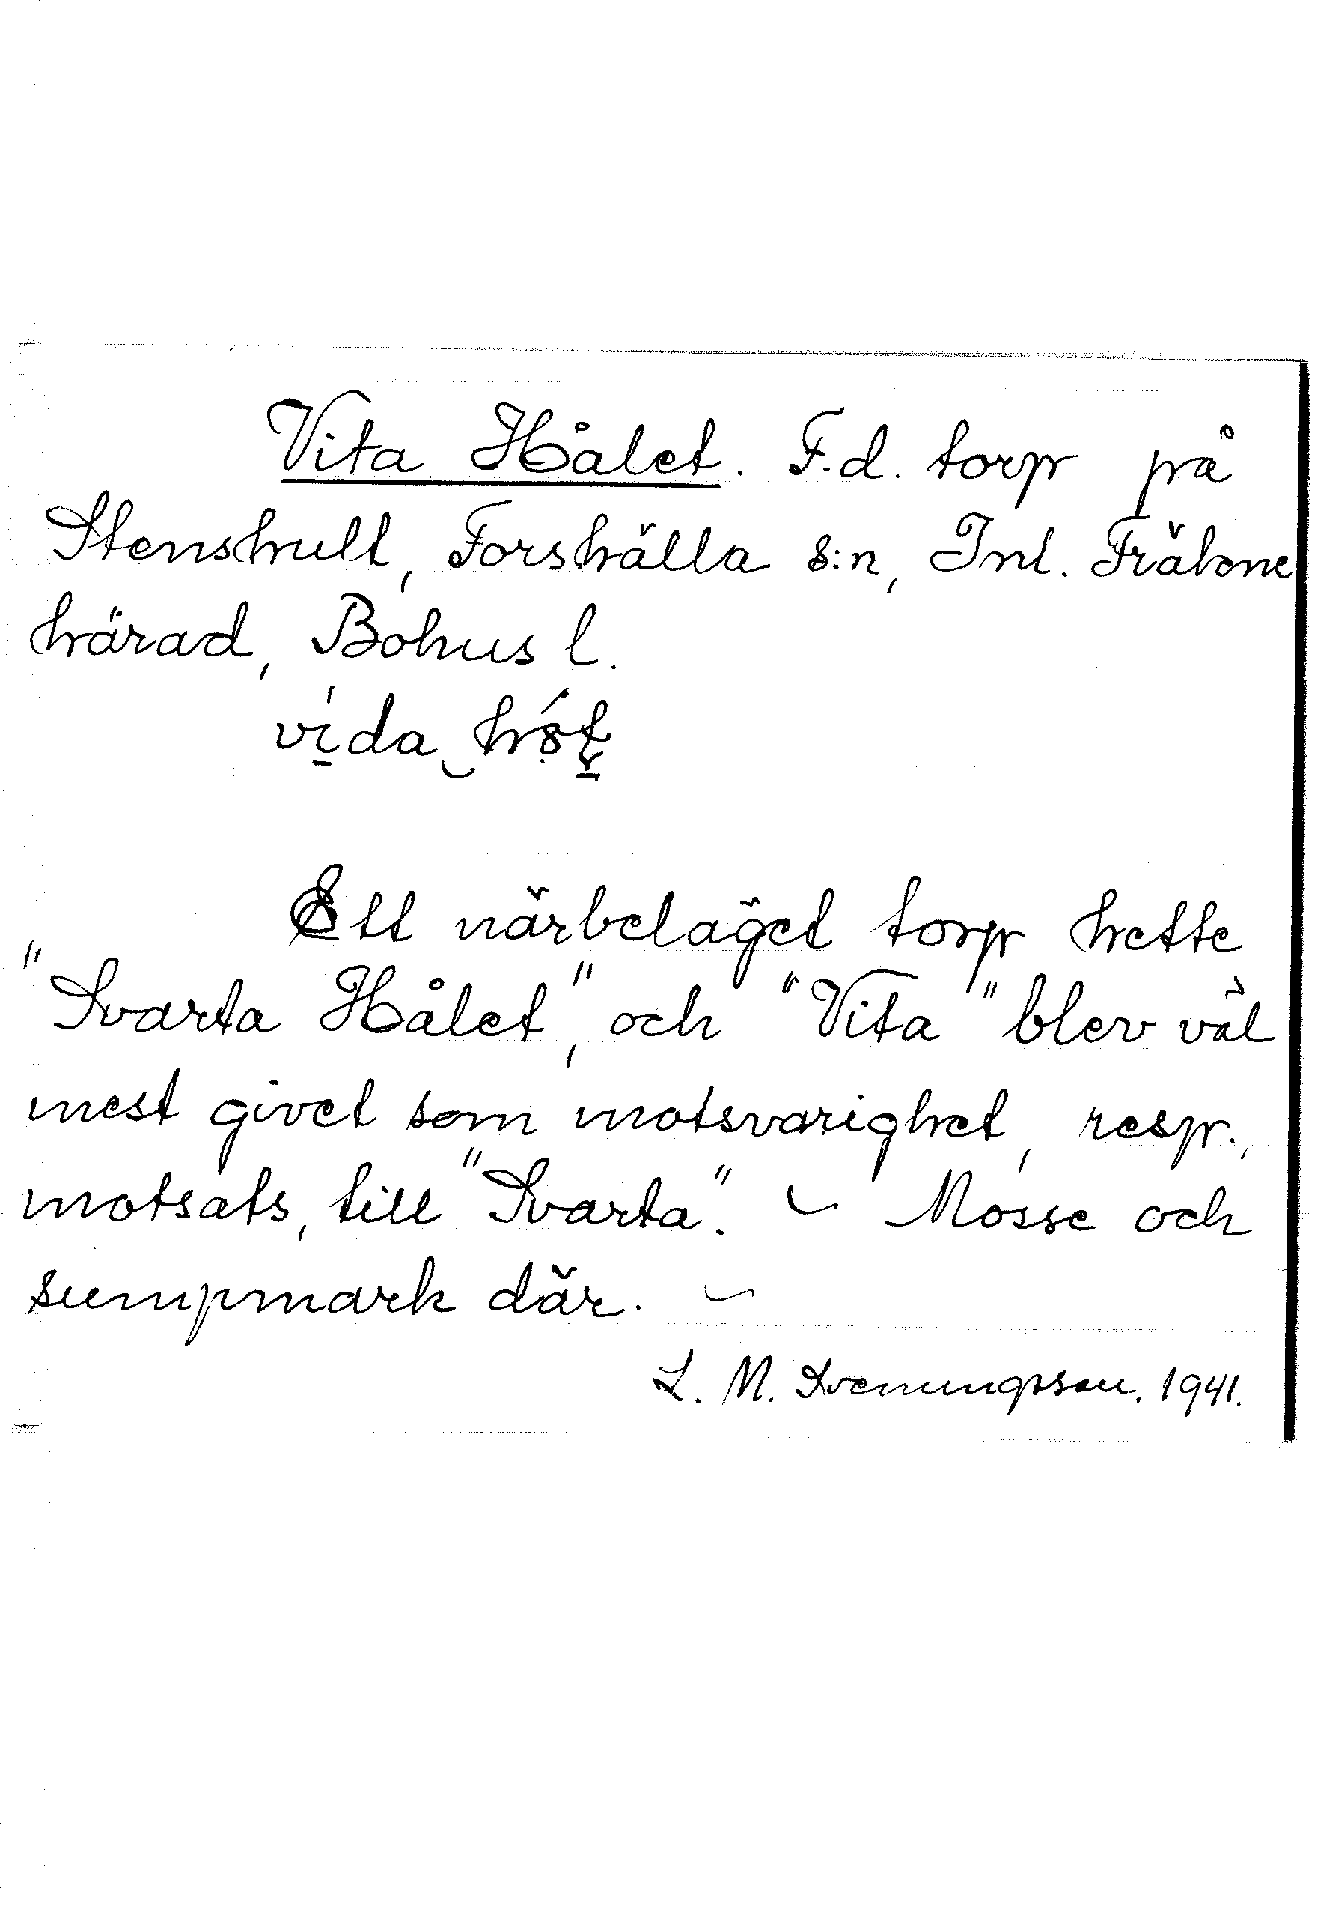 Vita Hålet. F.d. torp på
Stenshult, Forshälla s:n, Inl. Fräkne
härad, Bohus l.
vida
Ett närbeläget torp hette
"Svarta Hålet", och "Vita" blev väl
mest givet som motsvarighet, resp.,
motsats, till "Svarta". – Mosse och
sumpmark där. –
L. M. Svenungsson. 1941.